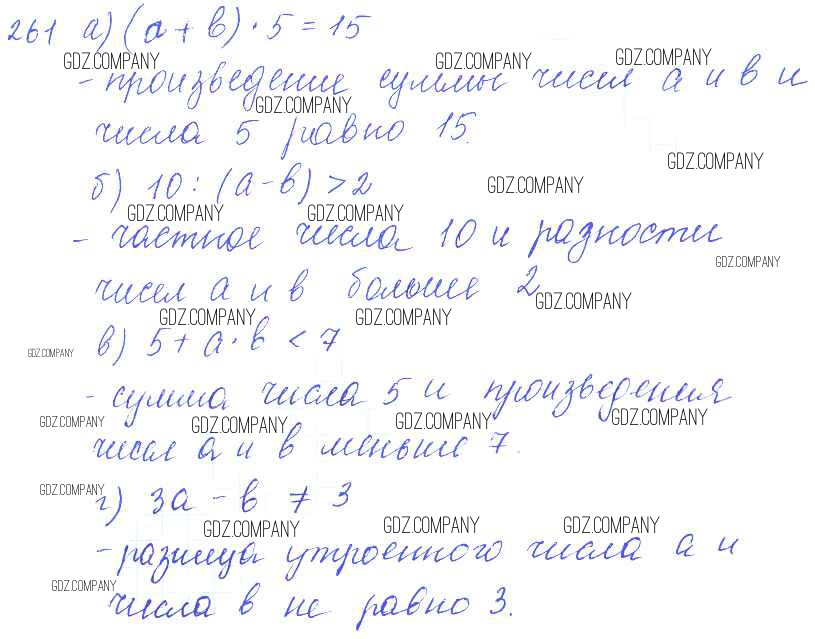 261 а) (а + в) · 5 = 15
GDZ.COMPANY GDZ.COMPANY GDZ.COMPANY
- произведение суммы чисел а и в и
GDZ.COMPANY
числа 5 равно 15.
GDZ.COMPANY
б) 10 : (а - в) > 2
GDZ.COMPANY
GDZ.COMPANY GDZ.COMPANY
- частное числа 10 и разности
GDZ.COMPANY
чисел а и в больше 2
GDZ.COMPANY
GDZ.COMPANY GDZ.COMPANY
в) 5 + а · в < 7
GDZ.COMPANY
- сумма числа 5 и произведения
GDZ.COMPANY GDZ.COMPANY GDZ.COMPANY GDZ.COMPANY
чисел а и в меньше 7.
GDZ.COMPANY
г) 3а - в ≠ 3
GDZ.COMPANY GDZ.COMPANY GDZ.COMPANY
- разница утроенного числа а и
GDZ.COMPANY
числа в не равно 3.